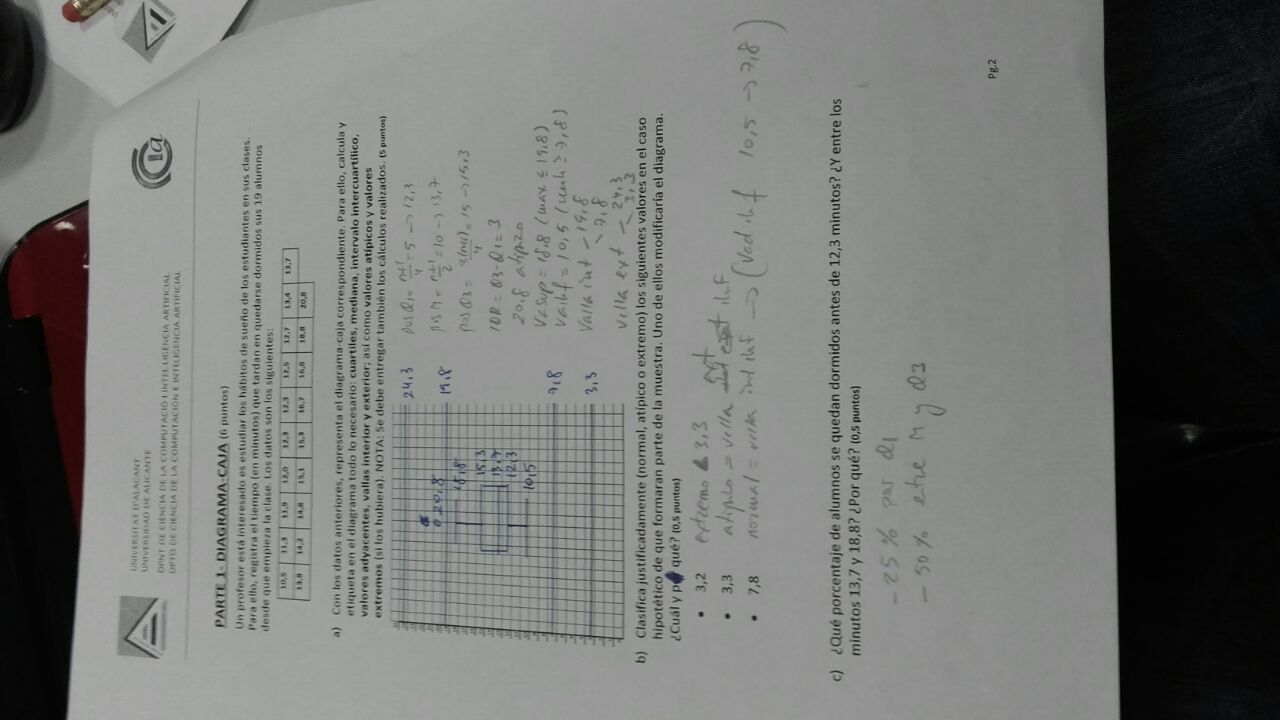 UNIVERSITAT D'ALACANT
UNIVERSIDAD DE ALICANTE
DPNT DE CIÈNCIA DE LA COMPUTACIÓ I INTEL·LIGÈNCIA ARTIFICIAL
DPTO DE CIENCIA DE LA COMPUTACIÓN E INTELIGENCIA ARTIFICIAL
PARTE 1- DIAGRAMA-CAJA (6 puntos)
Un profesor está interesado es estudiar los hábitos de sueño de los estudiantes en sus clases.
Para ello, registra el tiempo (en minutos) que tardan en quedarse dormidos sus 19 alumnos
desde que empieza la clase. Los datos son los siguientes:
10,5 11,3 11,9 12,0 12,3 12,3 12,5 12,7 13,4 13,7
13,8 14,2 14,8 15,1 15,3 16,7 16,8 18,8 20,8
a) Con los datos anteriores, representa el diagrama-caja correspondiente. Para ello, calcula y
etiqueta en el diagrama todo lo necesario: cuartiles, mediana, intervalo intercuartílico,
valores adyacentes, vallas interior y exterior; así como valores atípicos y valores
extremos (si los hubiera). NOTA: Se debe entregar también los cálculos realizados. (5 puntos)
24,3
20,8
19,8
18,8
15,3
13,7
12,3
10,5
7,8
3,3
pos Q1 = n+1/4 = 5 → 12,3
pos M = n+1/2 = 10 → 13,7
pos Q3 = 3(n+1)/4 = 15 → 15,3
IQR = Q3-Q1 = 3
20,8 atipico
Va sup = 18,8 (max ≤ 19,8)
Va inf = 10,5 ( ≥ 7,8)
Valla int - 19,8
7,8
Valla ext - 24,3
3,3
b) Clasifica justificadamente (normal, atípico o extremo) los siguientes valores en el caso
hipotético de que formaran parte de la muestra. Uno de ellos modificaría el diagrama.
¿Cuál y por qué? (0,5 puntos)
• 3,2 extremo < 3,3
• 3,3 atipico = valla ext inf
• 7,8 normal = valla int inf → (Vad inf 10,5 → 7,8)
c) ¿Qué porcentaje de alumnos se quedan dormidos antes de 12,3 minutos? ¿Y entre los
minutos 13,7 y 18,8? ¿Por qué? (0,5 puntos)
- 25% por Q1
- 50% etre M y Q3
Pg.2